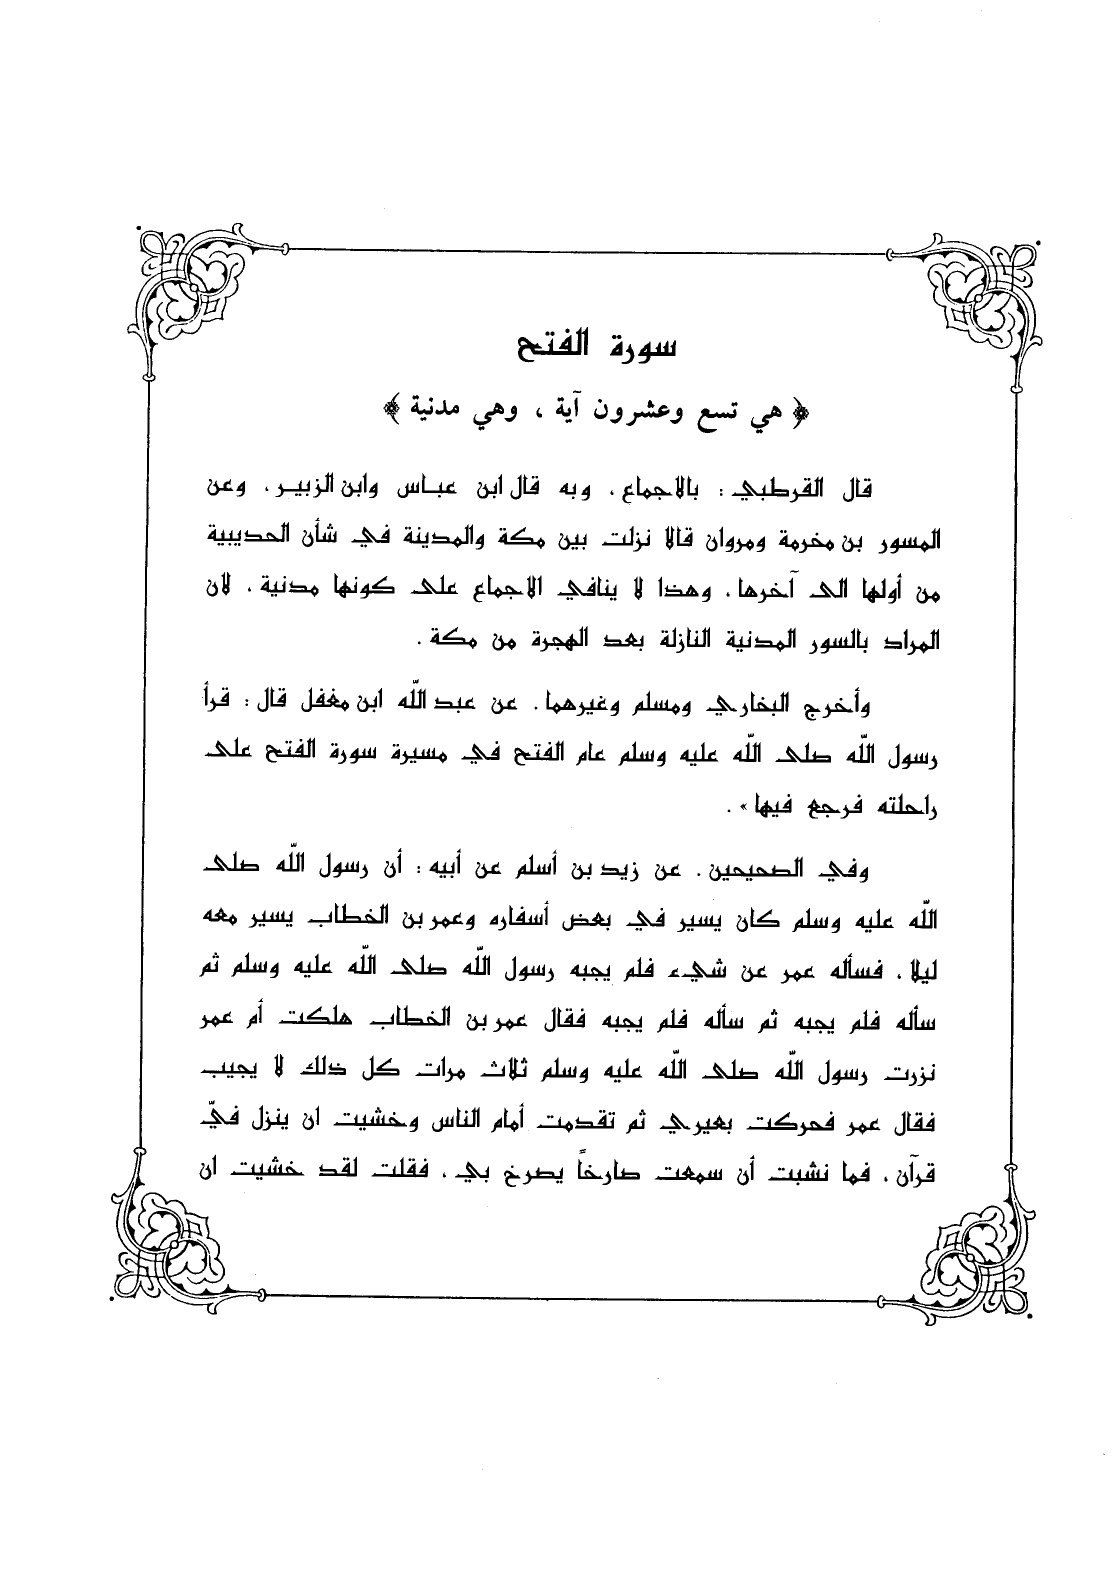 سورة الفتح
﴿ هي تسع وعشرون آية ، وهي مدنية ﴾
قال القرطبي : بالاجماع ، وبه قال ابن عباس وابن الزبير ، وعن
المسور بن مخرمة ومروان قالا نزلت بين مكة والمدينة في شأن الحديبية
من أولها الى آخرها ، وهذا لا ينافي الاجماع على كونها مدنية ، لان
المراد بالسور المدنية النازلة بعد الهجرة من مكة .
وأخرج البخاري ومسلم وغيرهما . عن عبد اللّه ابن مغفل قال : قرأ
رسول اللّه صلى اللّه عليه وسلم عام الفتح في مسيرة سورة الفتح على
راحلته فرجع فيها » .
وفي الصحيحين . عن زيد بن أسلم عن أبيه : أن رسول اللّه صلى
اللّه عليه وسلم كان يسير في بعض أسفاره وعمر بن الخطاب يسير معه
ليلا ، فسأله عمر عن شيء فلم يجبه رسول اللّه صلى اللّه عليه وسلم ثم
سأله فلم يجبه ثم سأله فلم يجبه فقال عمر بن الخطاب هلكت أم عمر
نزرت رسول اللّه صلى اللّه عليه وسلم ثلاث مرات كل ذلك لا يجيب
فقال عمر فحركت بعيري ثم تقدمت أمام الناس وخشيت ان ينزل فيّ
قرآن ، فما نشبت أن سمعت صارخاً يصرخ بي ، فقلت لقد خشيت ان